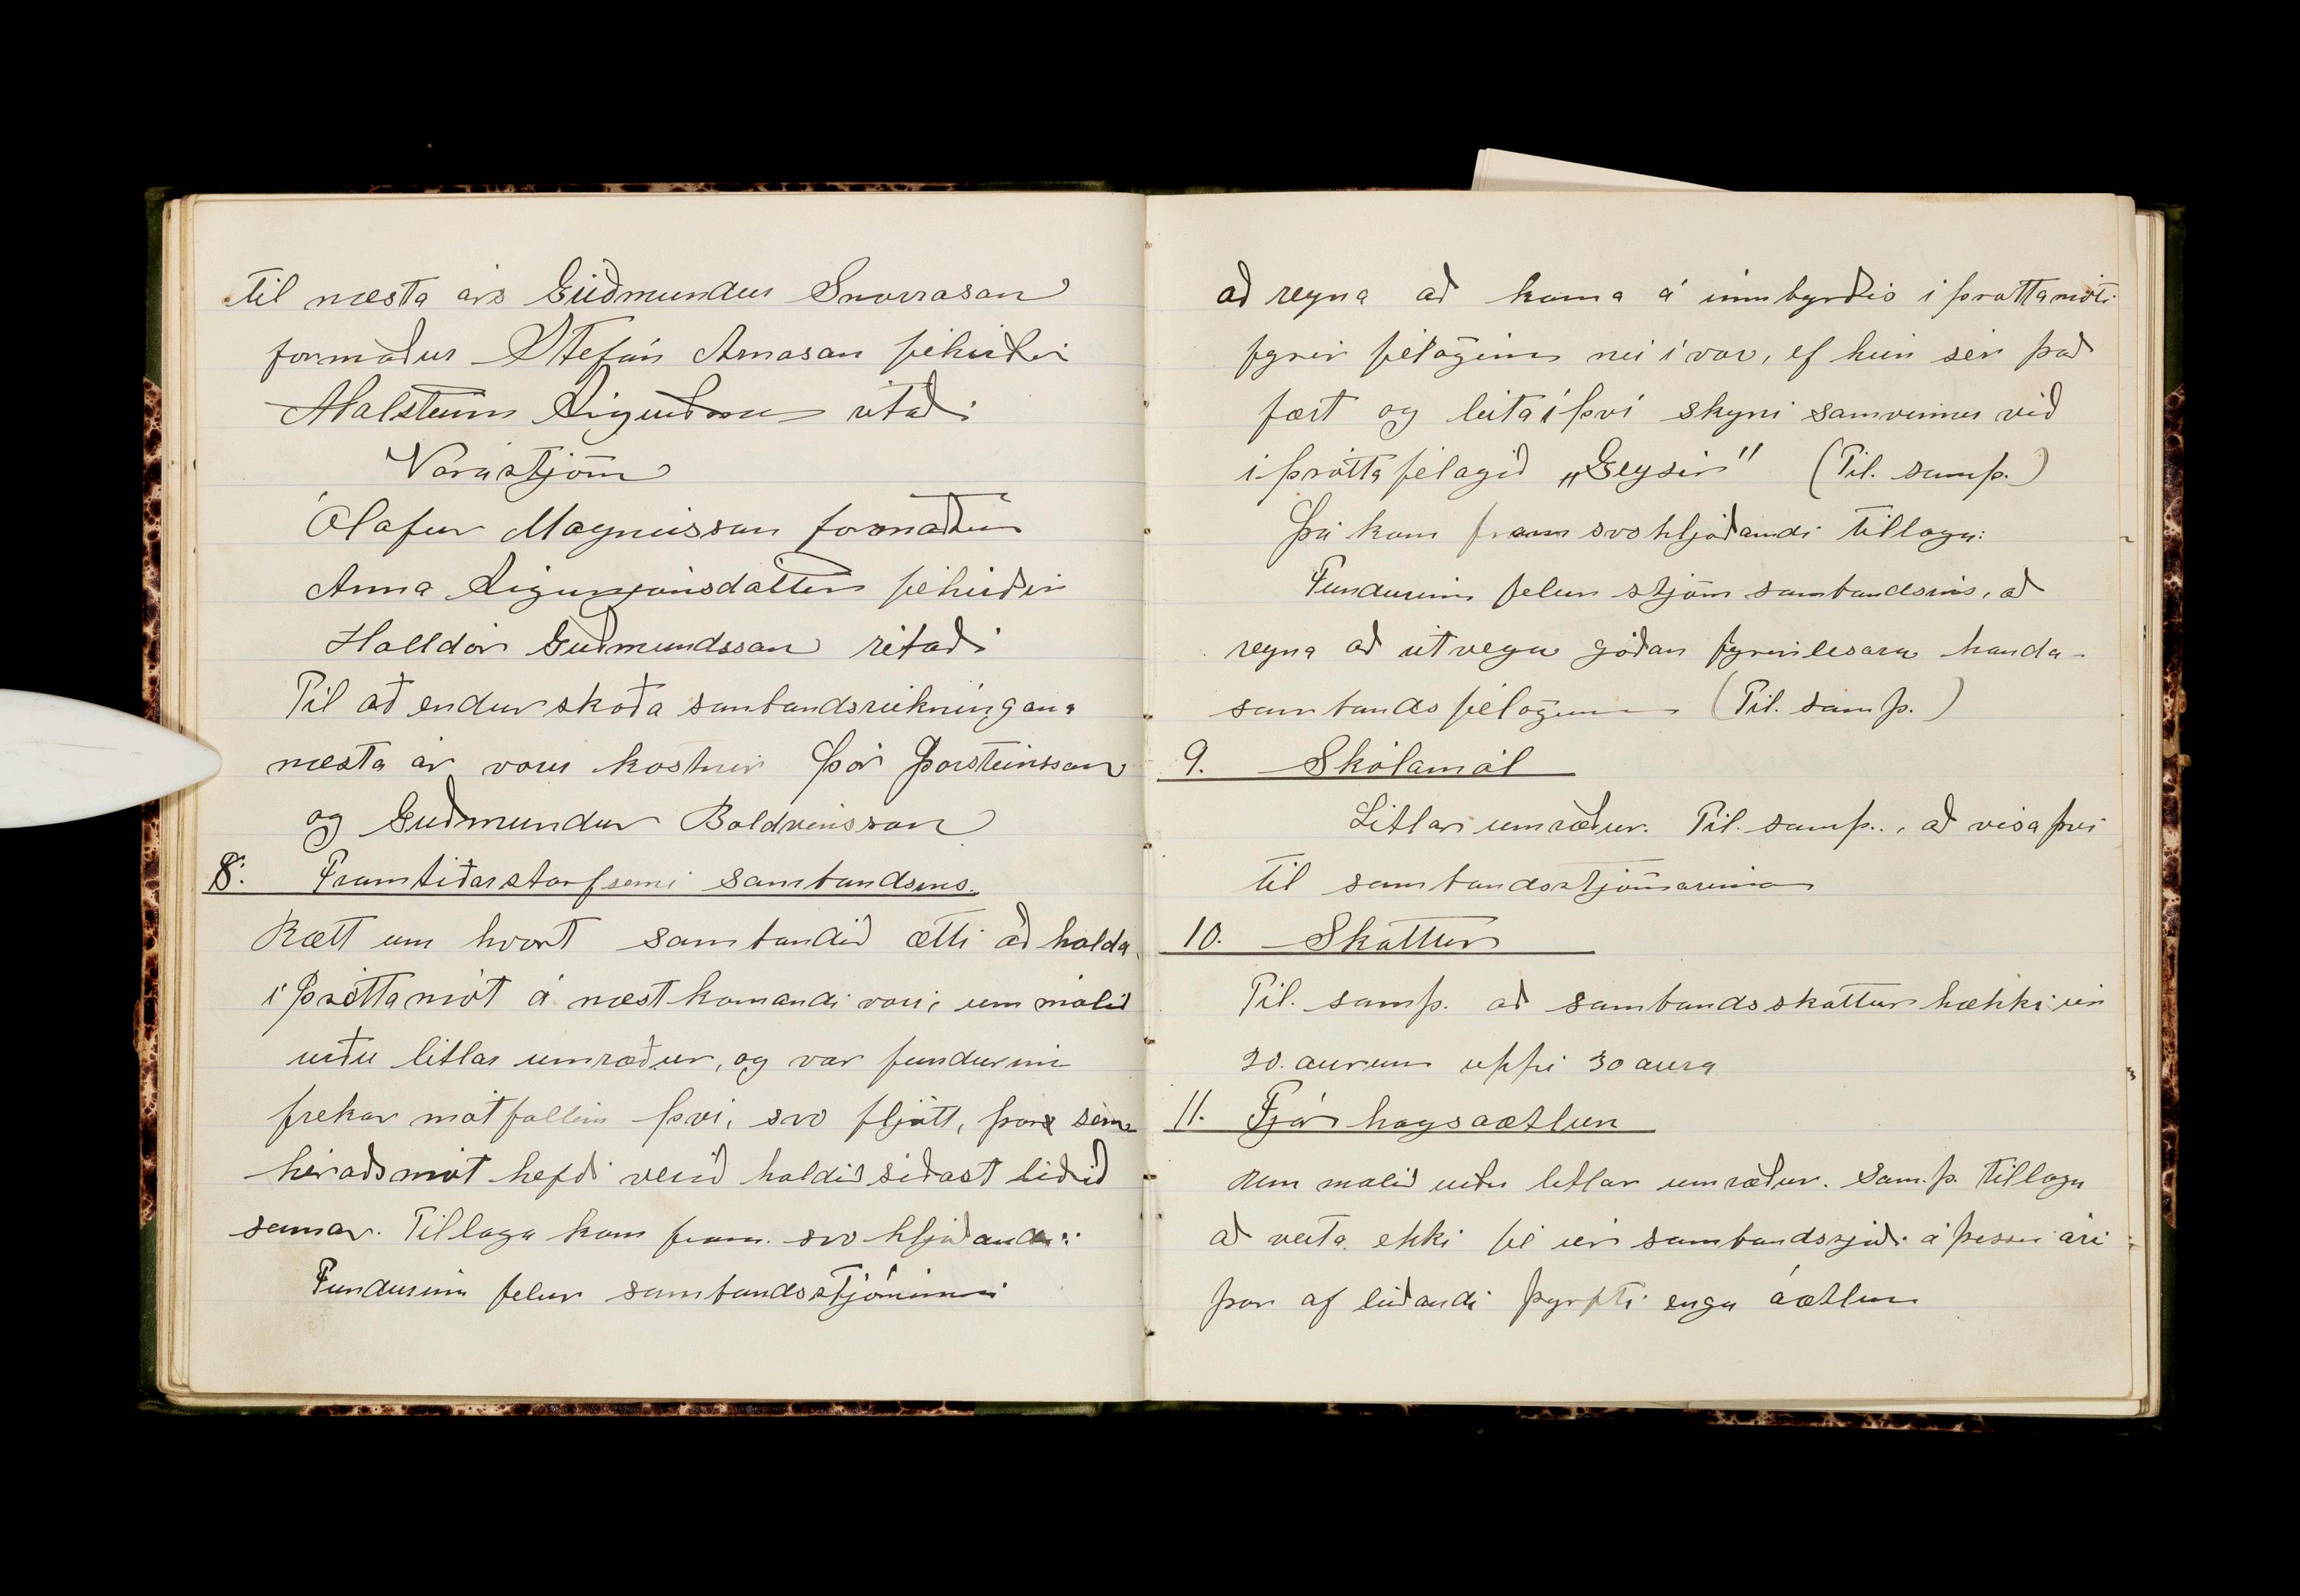 til næsta árs Guðmundur Snorrason
formaður Stefán Arnason féhirðir
Aðalsteinn Sigurðsson ritaði
Varastjórn
Ólafur Magnússon formaður
Anna Sigurjónsdóttir féhirðir
Halldór Guðmundsson ritaði
Til að endurskoða sambandsreikningana
næsta ár voru kostnir Þór Þorsteinsson
og Guðmundur Baldvinsson
8. Framtíðarstarfsemi sambandsins.
Rætt um hvort sambandið ætti að halda
íþróttamót á næstkomandi vori, um málið
urðu litlar umræður, og var fundurinn
frekar mótfallin því, svo fljótt, þar sem
héraðsmót hefði verið haldið síðast liðið
sumar. Tillaga kom fram. svo hljóðandi:
Fundurinn felur sambandsstjórninni
að reyna að koma á innbyrðis íþróttamóti
fyrir félögin nú í vor, ef hún sér það
fært og leita í því skyni samvinnu við
íþróttafélagið „Geysir" (Til. samþ.)
Þá kom fram svohljóðandi tillaga:
Fundurinn felur stjórn sambandsins, að
reyna að útvega góðan fyrirlesara handa
sambandsfélögunum (Til. samþ.)
9. Skólamál
Litlar umræður. Til. samþ., að vísa því
til sambandsstjórnarinnar
10. Skattur
Til. samþ. að sambandsskattur hækki úr
20. aurum uppi 30 aura
11. Fjárhagsáætlun
Um málið urðu litlar umræður. Sam.þ. tillaga
að veita ekki fé úr sambandssjóði á þessu ári
þar af leiðandi þyrfti enga áætlun